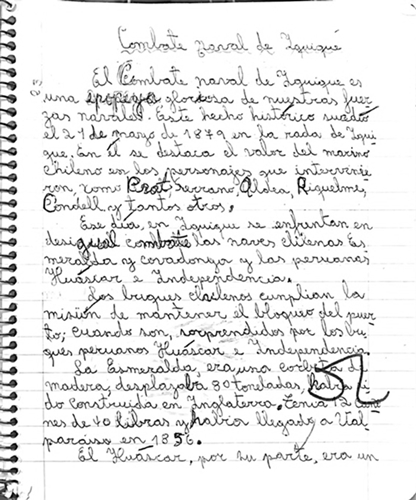 Combate naval de Iquique
El Combate naval de Iquique es
una epopeya gloriosa de nuestras fuer-
zas navales. Este hecho histórico sucedió
el 21 de mayo de 1879 en la rada de Iqui-
que. En él se destaca el valor del marino
chileno en los personajes que intervinie-
ron, como Prat, Serrano, Aldea, Riquelme,
Condell y tantos otros.
Ese día, en Iquique se enfrentan en
desigual combate las naves chilenas Es
meralda y covadonga y las peruanas
Huáscar e Independencia.
Los buques chilenos cumplian la
misión de mantener el bloqueo del puer-
to; cuando son, sorprendidos por los bu
ques peruanos Huáscar e Independencia.
La Esmeralda, era una corbeta de
madera, desplazaba 80 toneladas, habia si
do construida en Inglaterra. Tenia 12 caño
nes de 40 libras y habia llegado a Val
paraiso en 1856.
El Huáscar, por su parte, era un